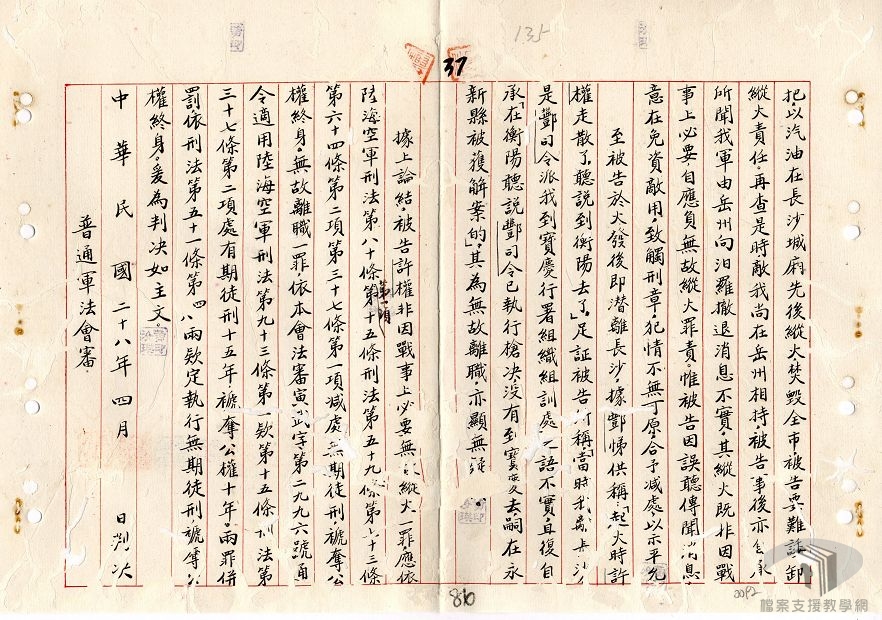 135
37
把，以汽油在長沙城廂先後縱火焚毀全市，被告要難諉卸
縱火責任。再查是時敵我尚在岳州相持，被告事後亦自承
所聞我軍由岳州向汨羅撤退消息不實，其縱火既非因戰
事上必要，自應負無故縱火罪責。惟被告因誤聽傳聞消息，
意在免資敵用，致觸刑章，犯情不無可原，合予減處以示平允。
至被告於火發後即潛離長沙，據酆悌供稱「起火時許
權走散了，聽說到衡陽去了」足証被告所稱「當時我離長沙
是酆司令派我到寶慶行署組織組訓處」之語不實，且復自
承「在衡陽聽說酆司令已執行槍決，沒有到寶慶去，嗣在永
新縣被獲解案的」，其為無故離職，亦顯無疑
據上論結，被告許權非因戰事上必要無故縱火一罪，應依
陸海空軍刑法第八十條第一項第十五條刑法第五十九條第七十三條
第六十四條第二項第三十七條第一項減處無期徒刑，褫奪公
權終身。無故離職一罪，依本會法審寅武字第二九九六號通
令適用陸海空軍刑法第九十三條第 款第十五條刑法第
三十七條第二項處有期徒刑十五年，褫奪公權十年。兩罪併
罰依刑法第五十一條第四、八兩款定執行無期徒刑，褫奪公
權終身。爰為判決如主文。
普通軍法會審
中華民國二十八年四月 日判決
810
2092
檔案支援教學網